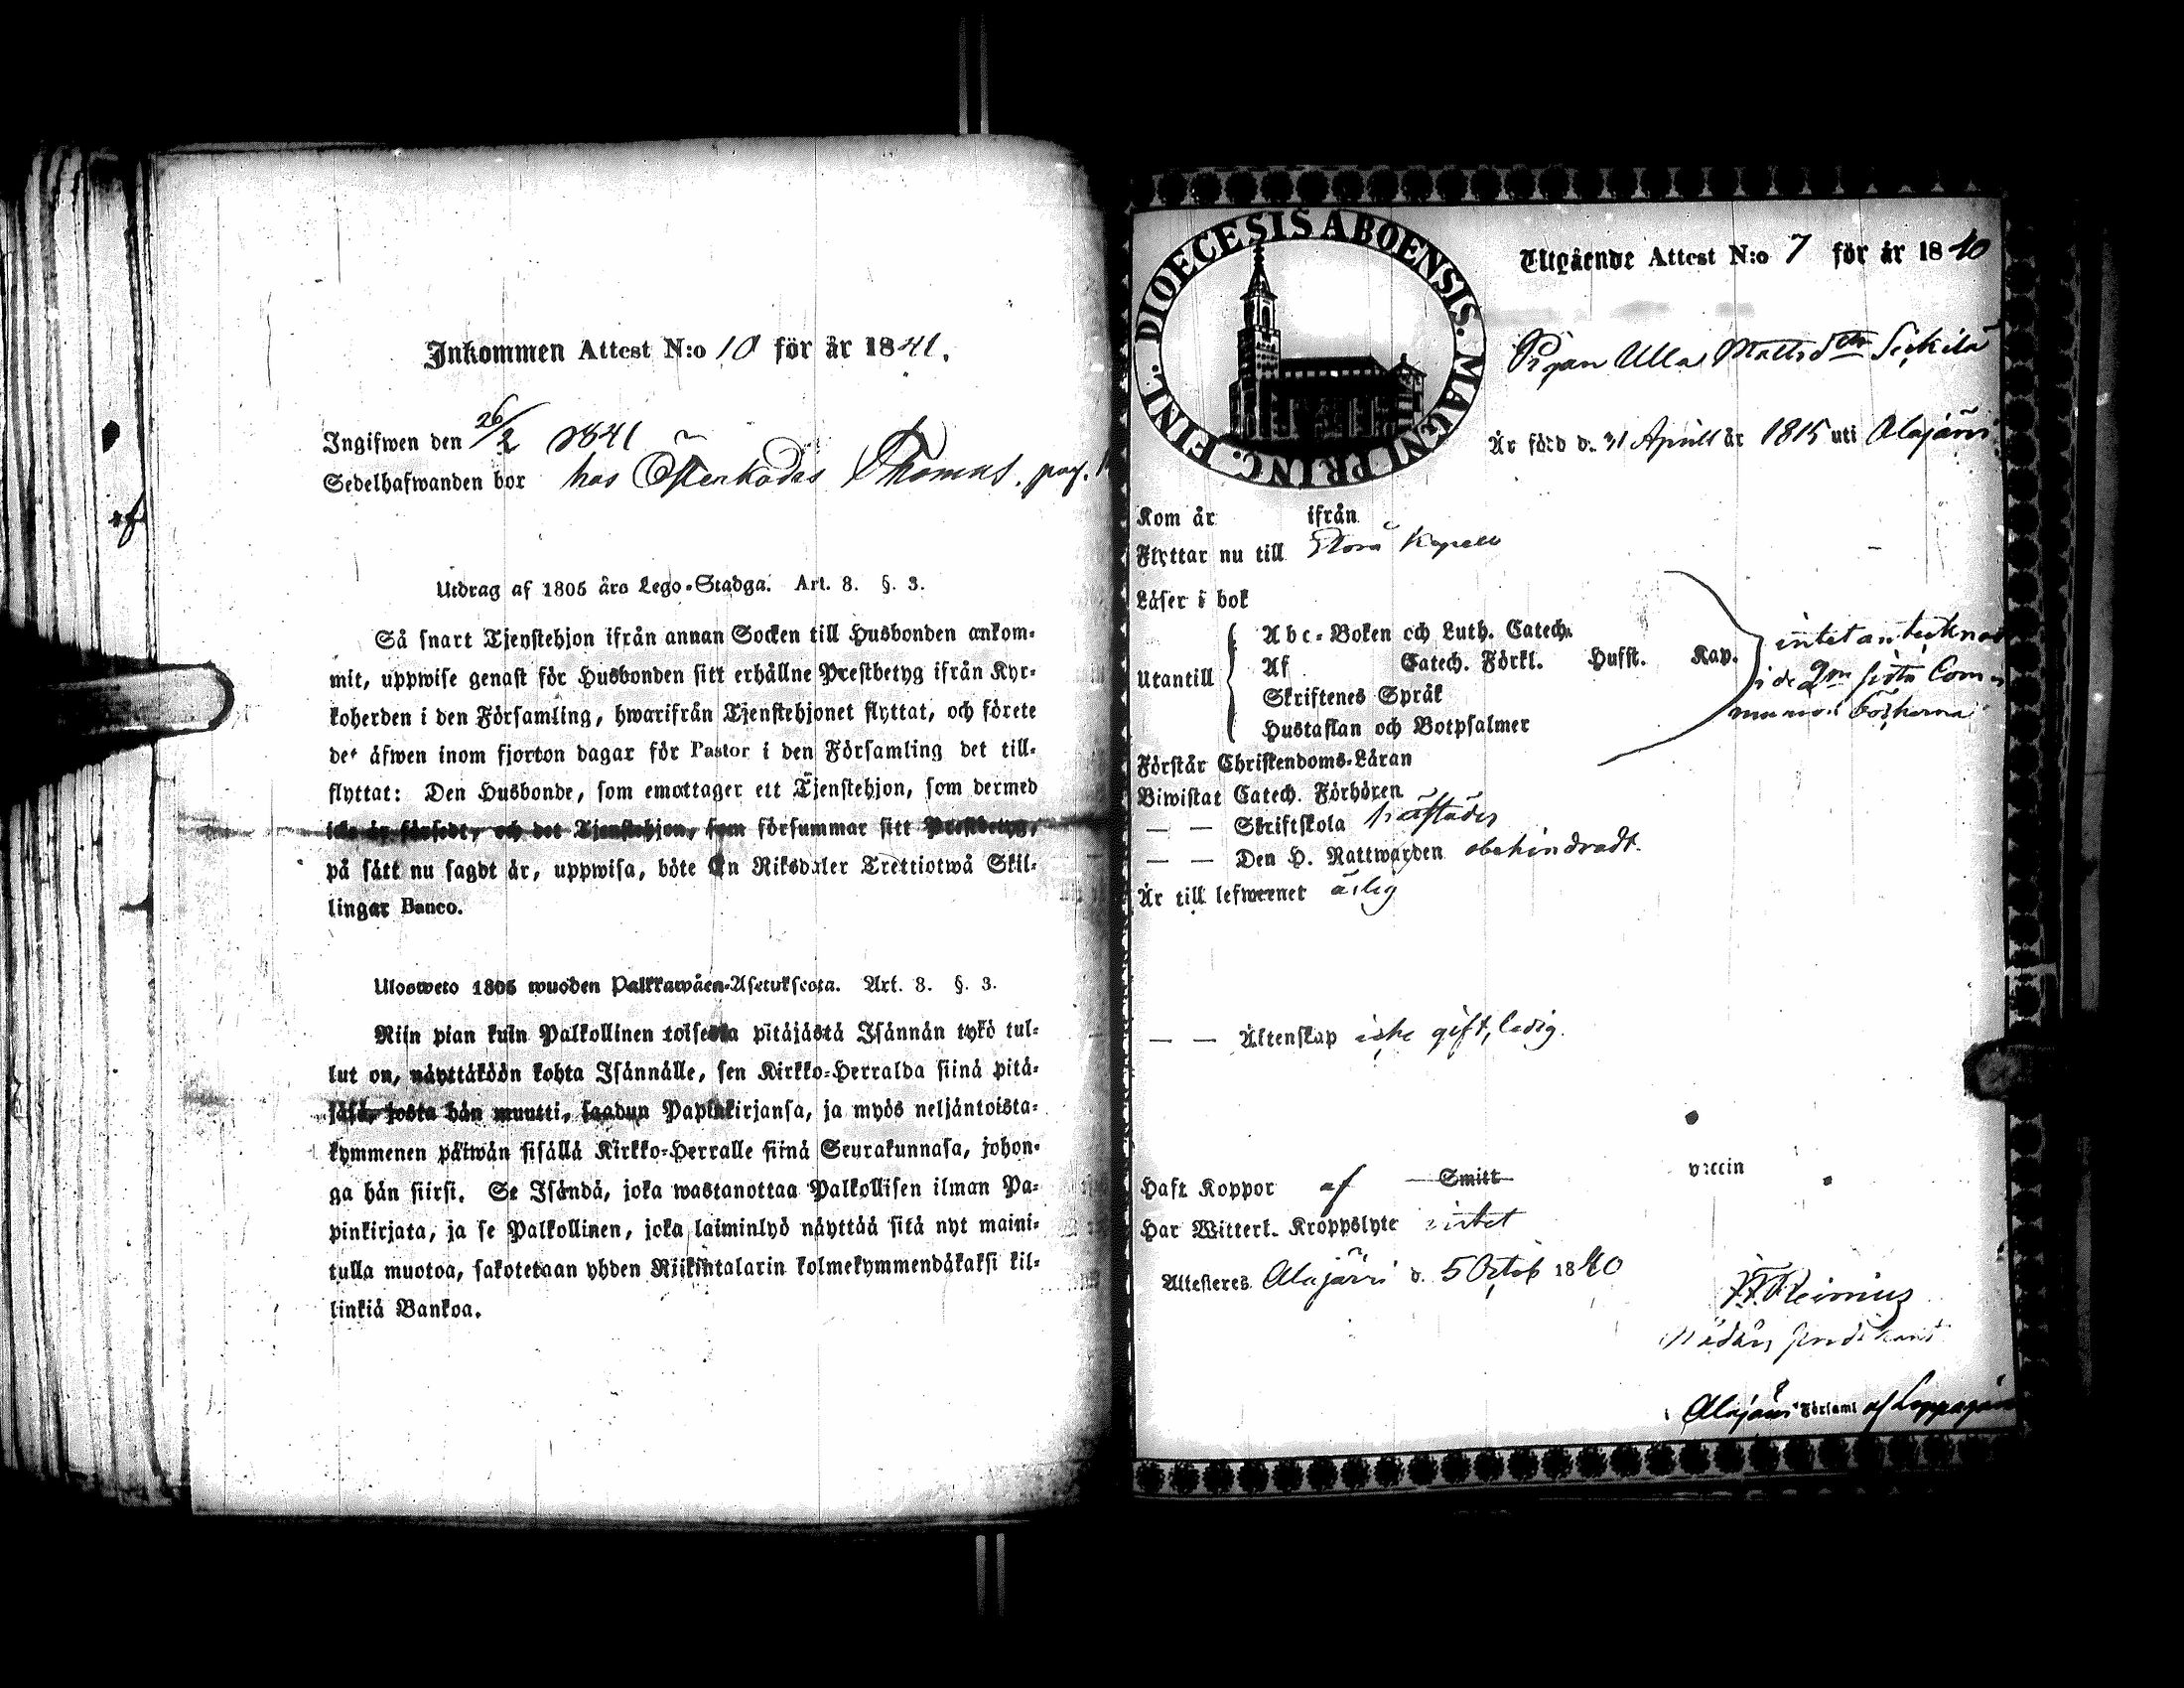 Inkommen Attest N:o 10 för år 1841.
Ingifwen den 26/2 1841
Sedelhafwanden bor hos Österkådas Thomas. pag.
Utdrag af 1805 års Lego-Stadga. Art. 8. §. 3.
Så snart Tjenstehjon ifrån annan Socken till Husbonden ankom-
mit, uppwise genast för Husbonden sitt erhållne Prestbetyg ifrån Kyr-
koherden i den Församling, hwarifrån Tjenstehjonet flyttat, och förete
det åfwen inom fjorton dagar för Pastor i den Församling det till-
flyttat: Den Husbonde, som emottager ett Tjenstehjon, som dermed
icke är försedt, och det Tjenstehjon, som försummar sitt Prestbetyg,
på sått nu sagdt år, uppwisa, böte En Riksdaler Trettiotwå Skil-
lingar Banco.
Ulosweto 1805 wuoden Palkkawåen-Asetuksesta. Art. 8. §. 3.
Niin pian kuin Palkollinen toisesta pitåjåstå Isånnån tykö tul-
lut on, nåyttåköön kohta Isånnålle, sen Kirkko-Herralda siinå pitå-
jåså, josta hån muutti, saadun Papinkirjansa, ja myös neljåntoista-
kymmenen påiwån sisållå Kirkko-Herralle siinå Seurakunnasa, johon-
ga hån siirsi. Se Isåndå, joka wastanottaa Palkollisen ilman Pa-
pinkirjata, ja se Palkollinen, joka laiminlyö nåyttåå sitå nyt maini-
tulla muotoa, sakotetaan yhden Riiksintalarin kolmekymmendåkaksi kil-
linkiå Bankoa.
DIOECESIS ABOENSIS. MAGNI PRINC. FINL.
Utgående Attest N:o 7 för år 1840
Pigan Ulla Mattsdtr
Är född d. 31 Aprill år 1815 uti Alajärvi
Kom år ifrån
Flyttar nu till Storå Kapell
Låser i bok
Utantill
Abc-Boken och Luth. Catech.
Af Catech. Förkl. Husft. Kap.
Skriftenes Språk
Hustaflan och Botpsalmer
intet antecknat
i de 2ne sista Com-
munion böckerna
Förstår Christendoms-Låran
Biwistat Catech. Förhören
— — Skriftskola
— — Den H. Nattwarden obehindradt.
År till lefwernet ärlig
— — Äktenskap icke gift, ledig.
Haft Koppor af Smitt vaccin
Har Witterl. Kroppslyte intet
Attesteres Alajärvi d. 5 Octob 1840
i Alajärvi Församl